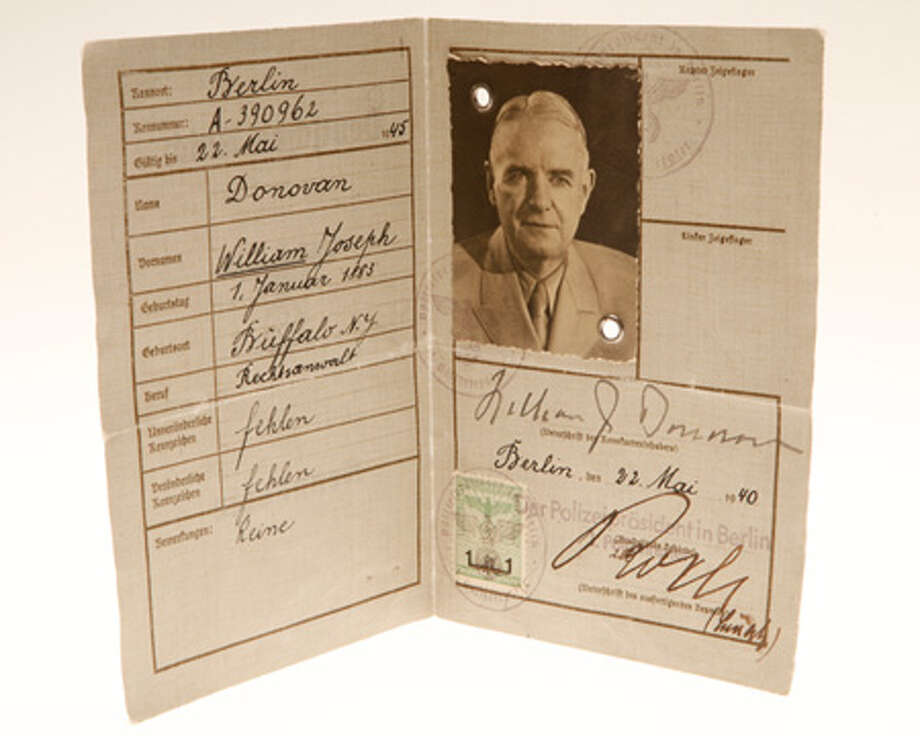 Kennort: Berlin
Kennummer: A-390962
Gültig bis 22. Mai 1945
Name Donovan
Vornamen William Joseph
Geburtstag 1. Januar 1883
Geburtsort Buffalo N.Y.
Beruf Rechtsanwalt
Unveränderliche Kennzeichen fehlen
Veränderliche Kennzeichen fehlen
Bemerkungen: Keine
Rechter Zeigefinger
Linker Zeigefinger
William J Donovan
(Unterschrift des Kennkarteninhabers)
Berlin, den 22. Mai 1940
Der Polizeipräsident in Berlin
1 1
(Unterschrift des ausfertigenden Beamten)